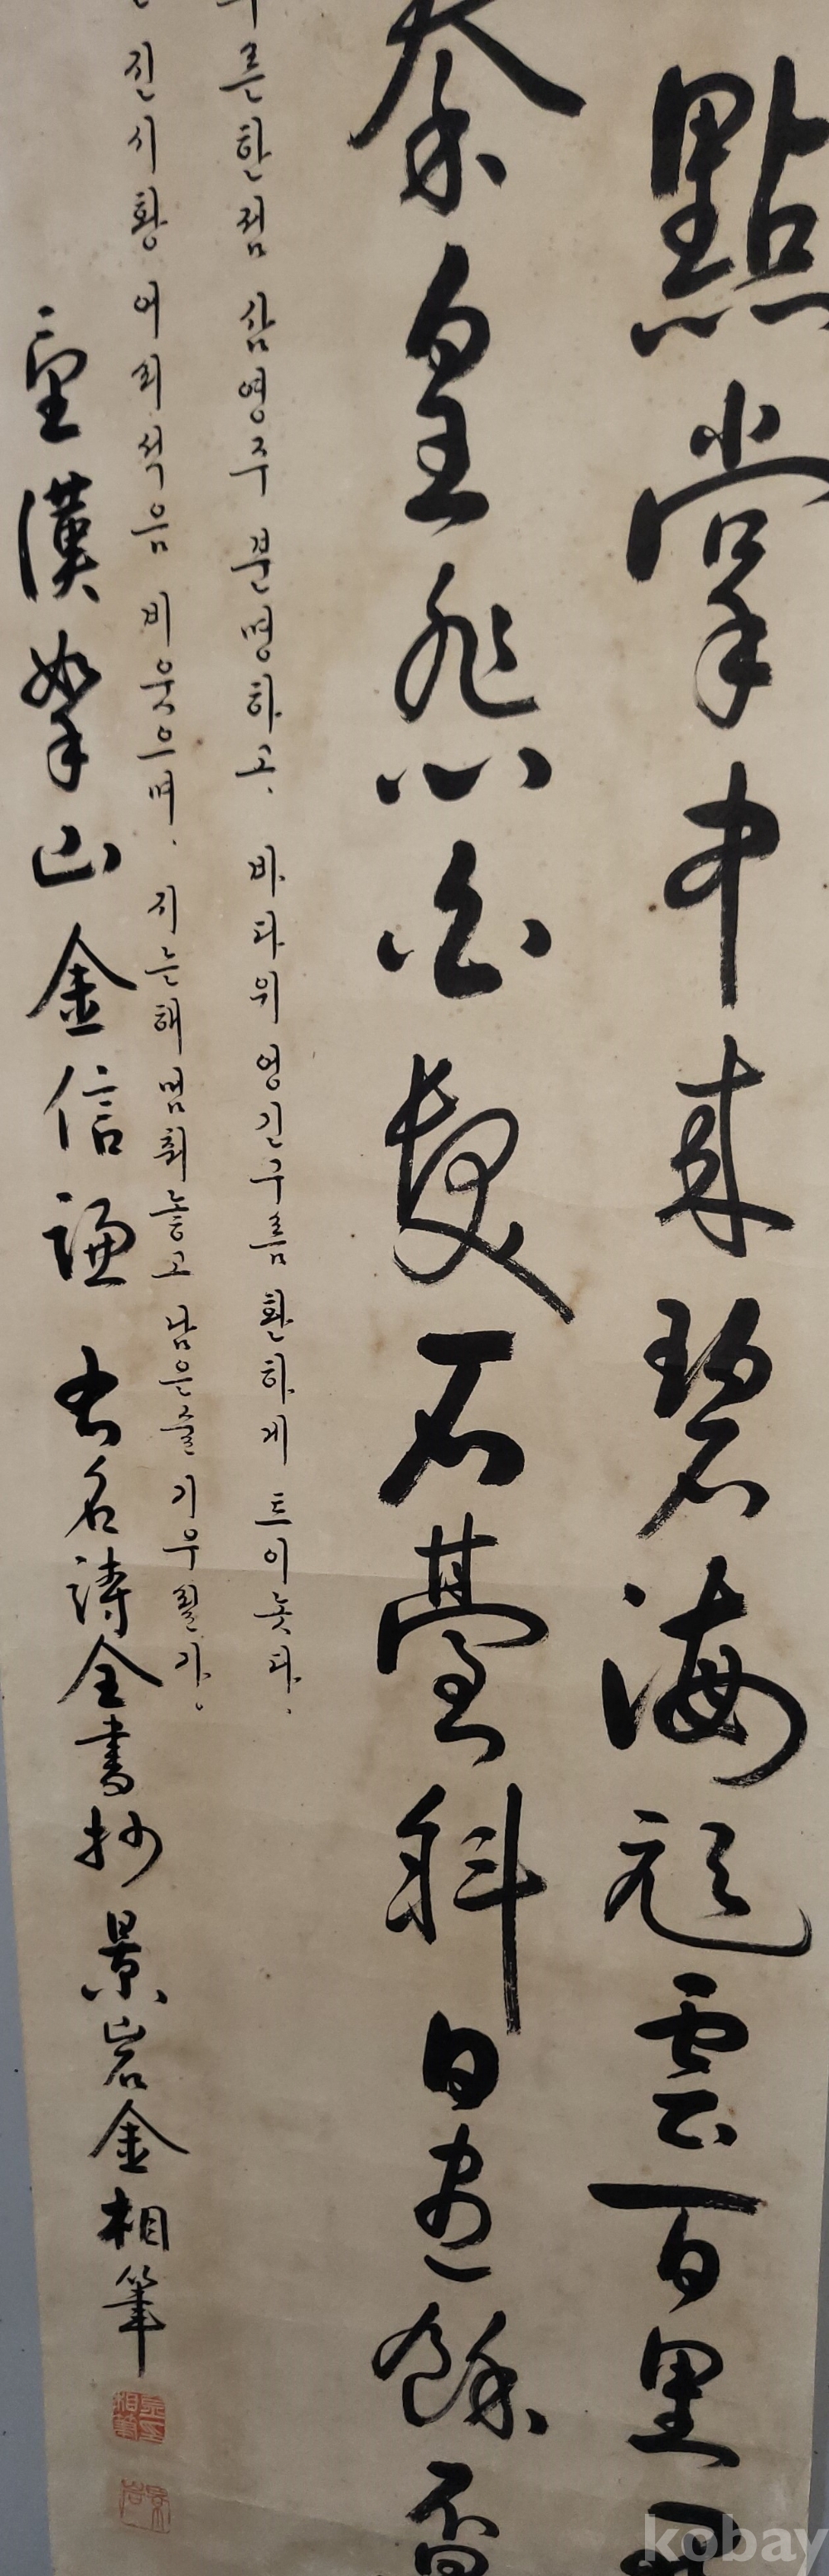 點掌中來碧海頑雲百里
秦皇悲白髮石臺斜日盡餘
른한점 삼영주 분명하고, 바다위 엉긴구름 환하게 트이놋다.
진시황 어리석음 비웃으며, 지는해 멈춰놓고 남은술 기우릴가。
望漢拏山金信謙 右名詩全書抄 景岩金相筆
kobay